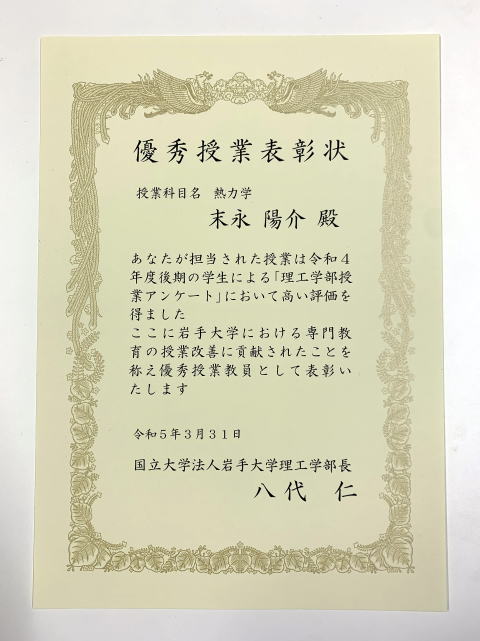 優秀授業表彰状
授業科目名 熱力学
末永 陽介 殿
あなたが担当された授業は令和４
年度後期の学生による「理工学部授
業アンケート」において高い評価を
得ました
ここに岩手大学における専門教
育の授業改善に貢献されたことを
称え優秀授業教員として表彰い
たします
令和５年３月３１日
国立大学法人岩手大学理工学部長
八代 仁